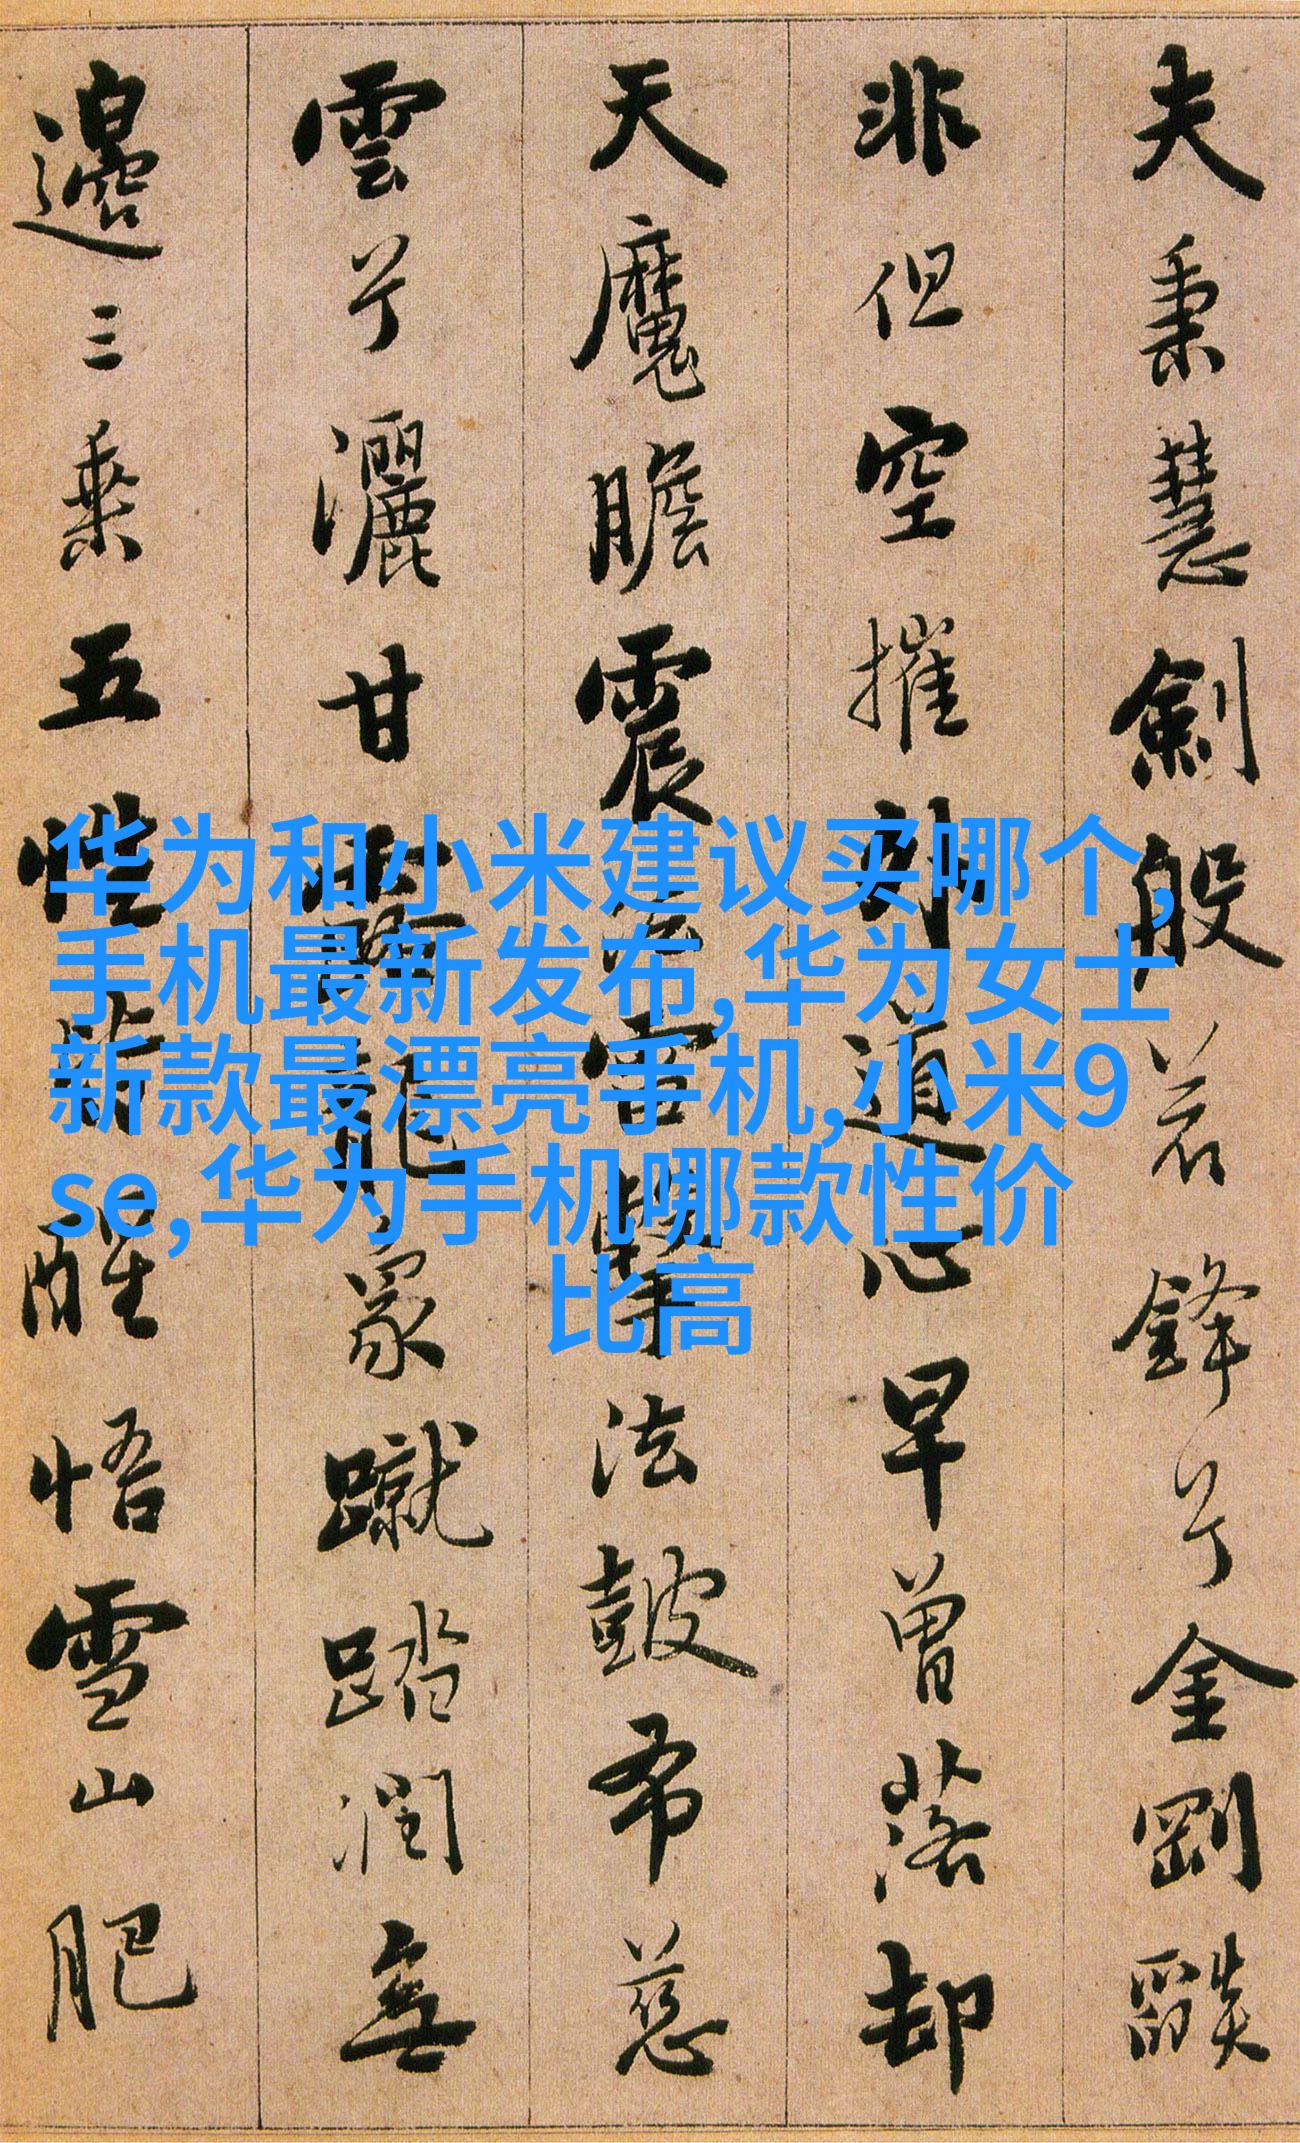 夫秉慧劍般若鋒兮金剛燄
非但空摧外道心早曾落却
天魔膽震法雷擊法鼓布慈
雲兮灑甘露龍象蹴踏潤無
邊三乘五性皆醒悟雪山肥
华为和小米建议买哪个,
手机最新发布,华为女士
新款最漂亮手机,小米9
se,华为手机哪款性价
比高